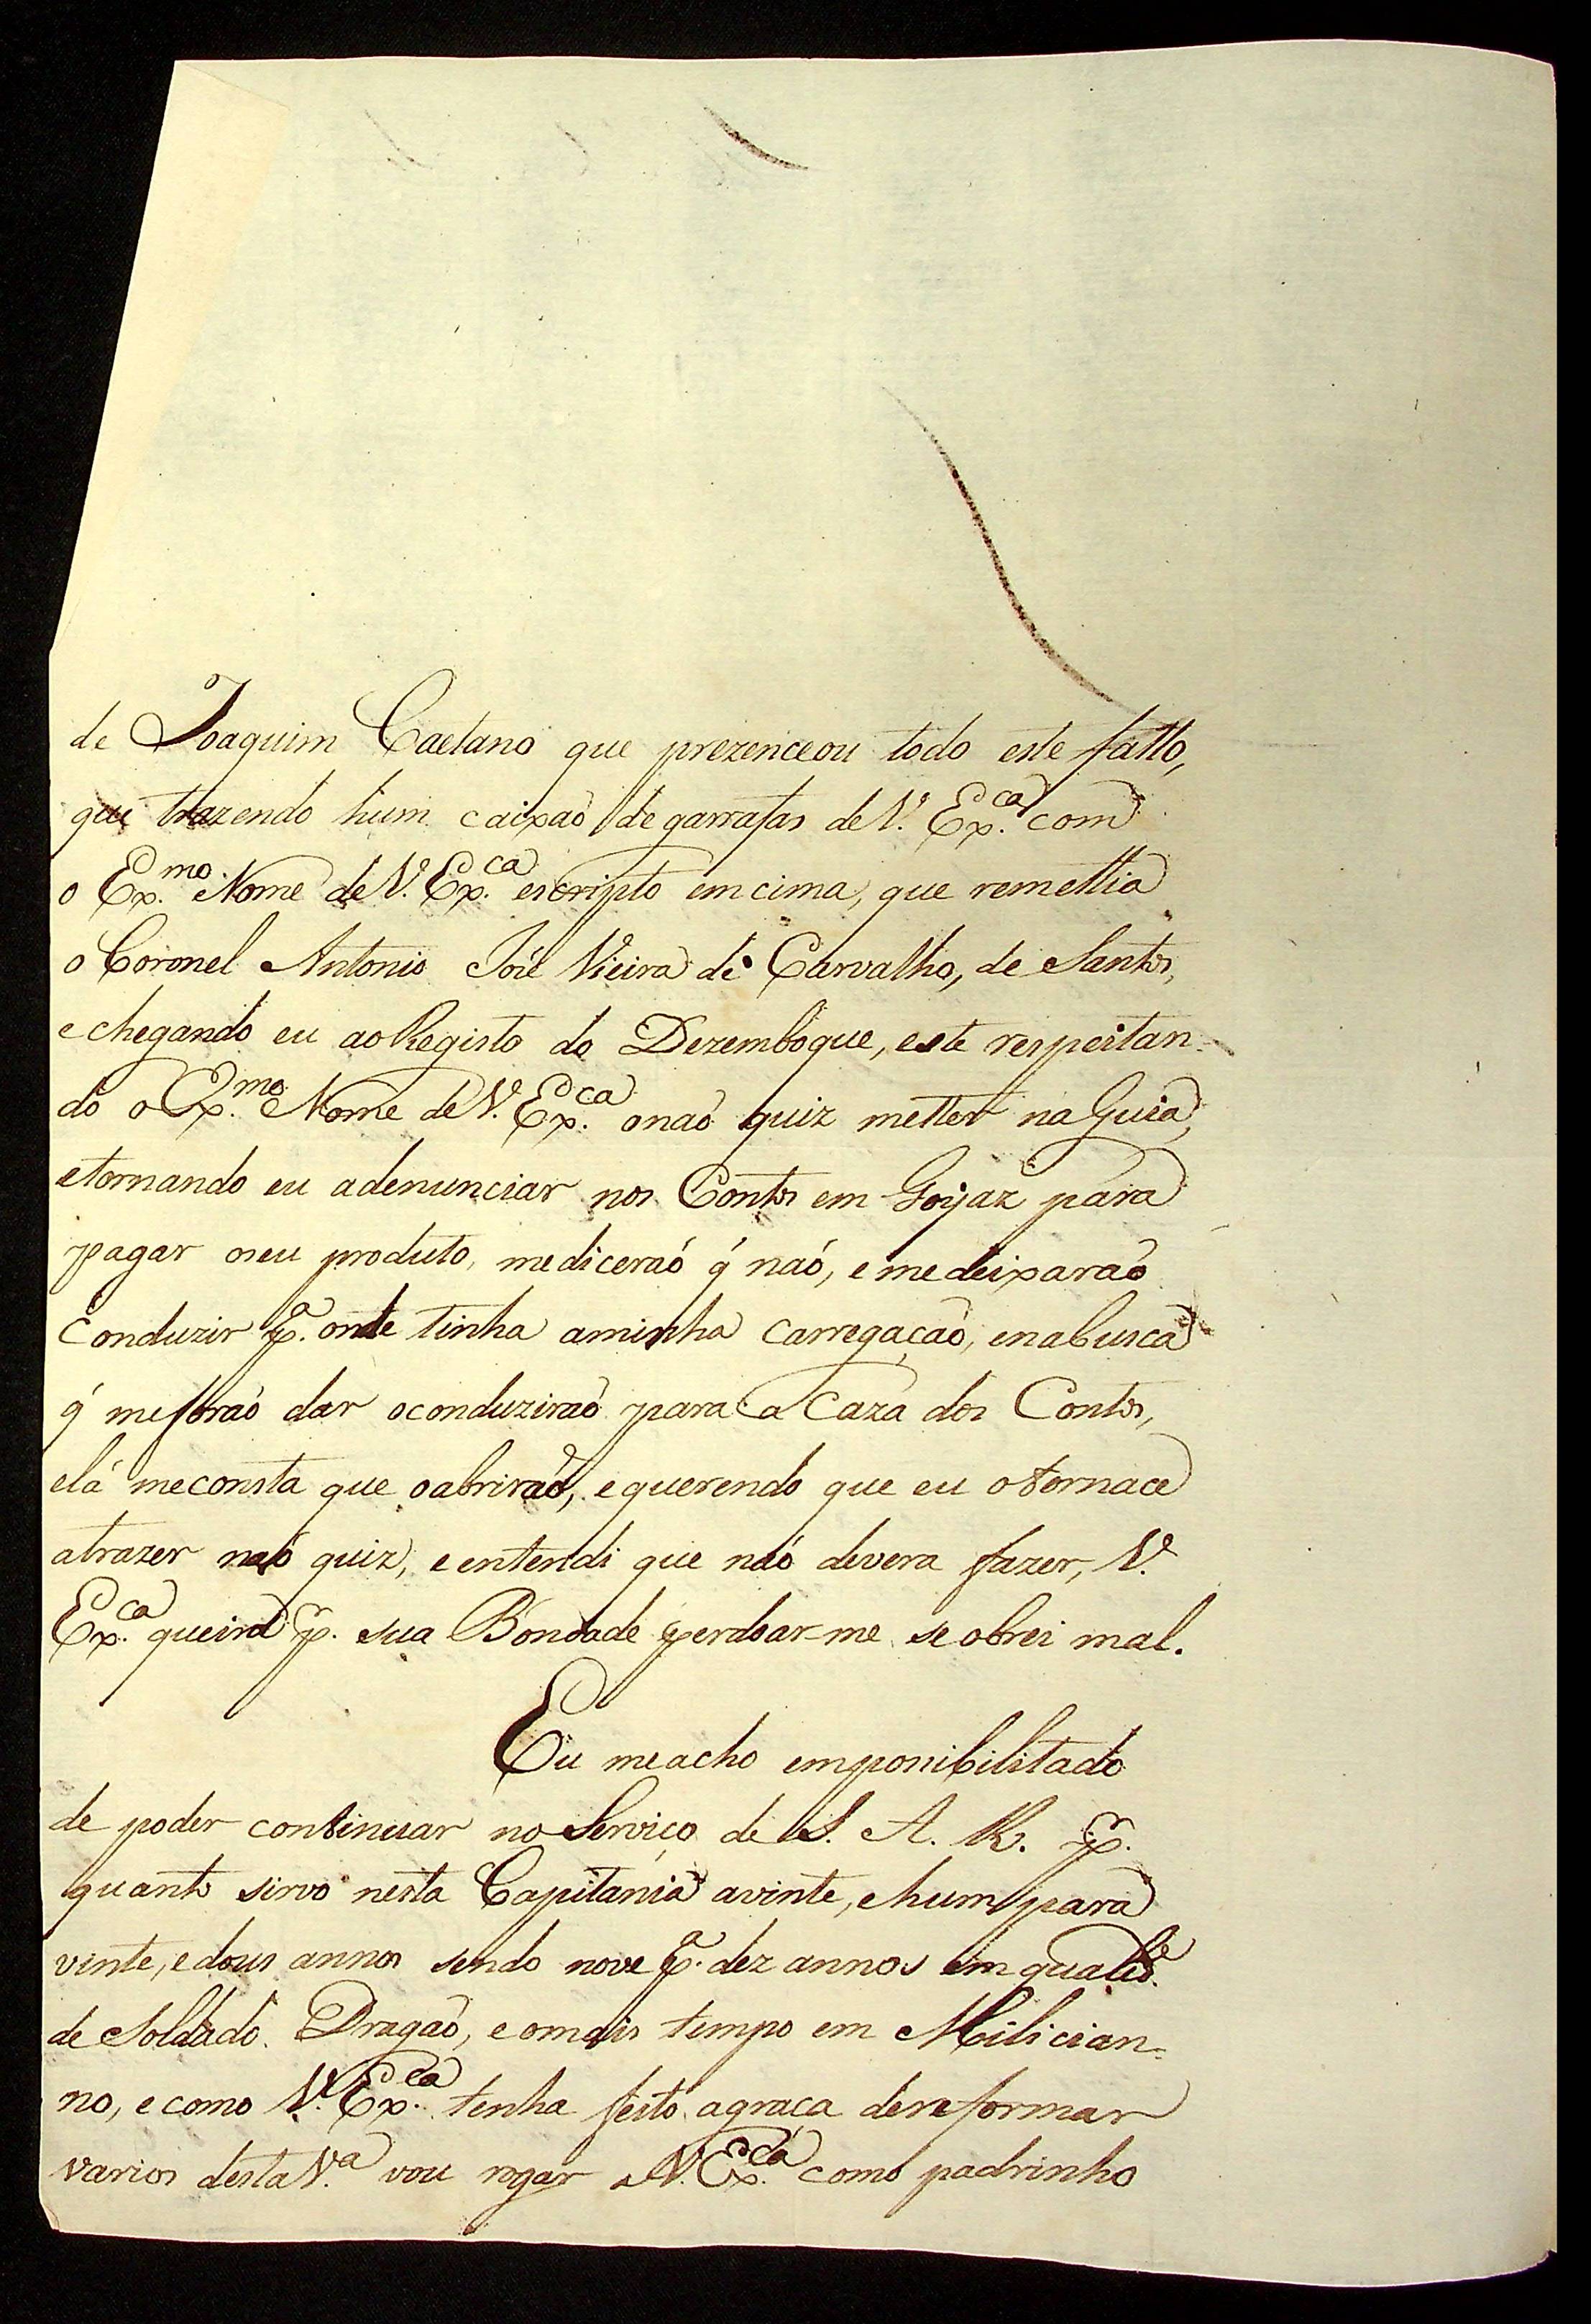 de Joaquim Caetano que prezenceou todo este fatto,
que trazendo hum caixaõ de garrafas de V. Ex.ca com
o Ex.mo Nome de V. Ex.ca escripto em cima, que remettia
o Coronel Antonio José Vieira de Carvalho, de Santos,
e chegando eu ao Registo do Dezemboque, este respeitan-
do o Ex.mo Nome de V. Ex.ca o naõ quiz metter na Guia,
e tornando eu a denunciar nos Contos em Goyaz para
pagar o seu produto, me diceraõ q' naõ, e me deixaraõ
conduzir p.a onde tinha a minha carregaçaõ, e na busca
q' me foraõ dar o conduziraõ para a Caza dos Contos,
e lá me consta que o abriraõ, e querendo que eu o tornace
a trazer naõ quiz, e entendi que naõ devera fazer, V.
Ex.ca queira p.r sua Bondade perdoar-me se obrei mal.
Eu me acho emposibilitado
de poder continuar no Serviço de S. A. R. p.r
quanto sirvo nesta Capitania a vinte, e hum para
vinte, e dous annos sendo nove p.a dez annos em qualid.e
de Soldado Dragaõ, e o mais tempo em Milician-
no, e como V. Ex.ca tenha feito a graça de reformar
varios desta V.a vou rogar a V. Ex.ca como padrinho